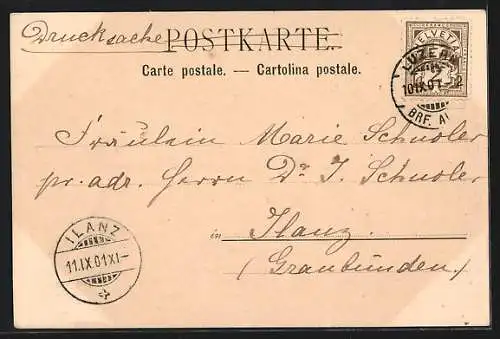 Drucksache POSTKARTE.
Carte postale. — Cartolina postale.
HELVETIA
2
LUZERN
10.IX.01
BRF.
Fräulein Marie Schuoler
pr. adr. Herrn Dr. J. Schuoler
in Ilanz.
(Graubünden.)
ILANZ
11.IX.01.XI-